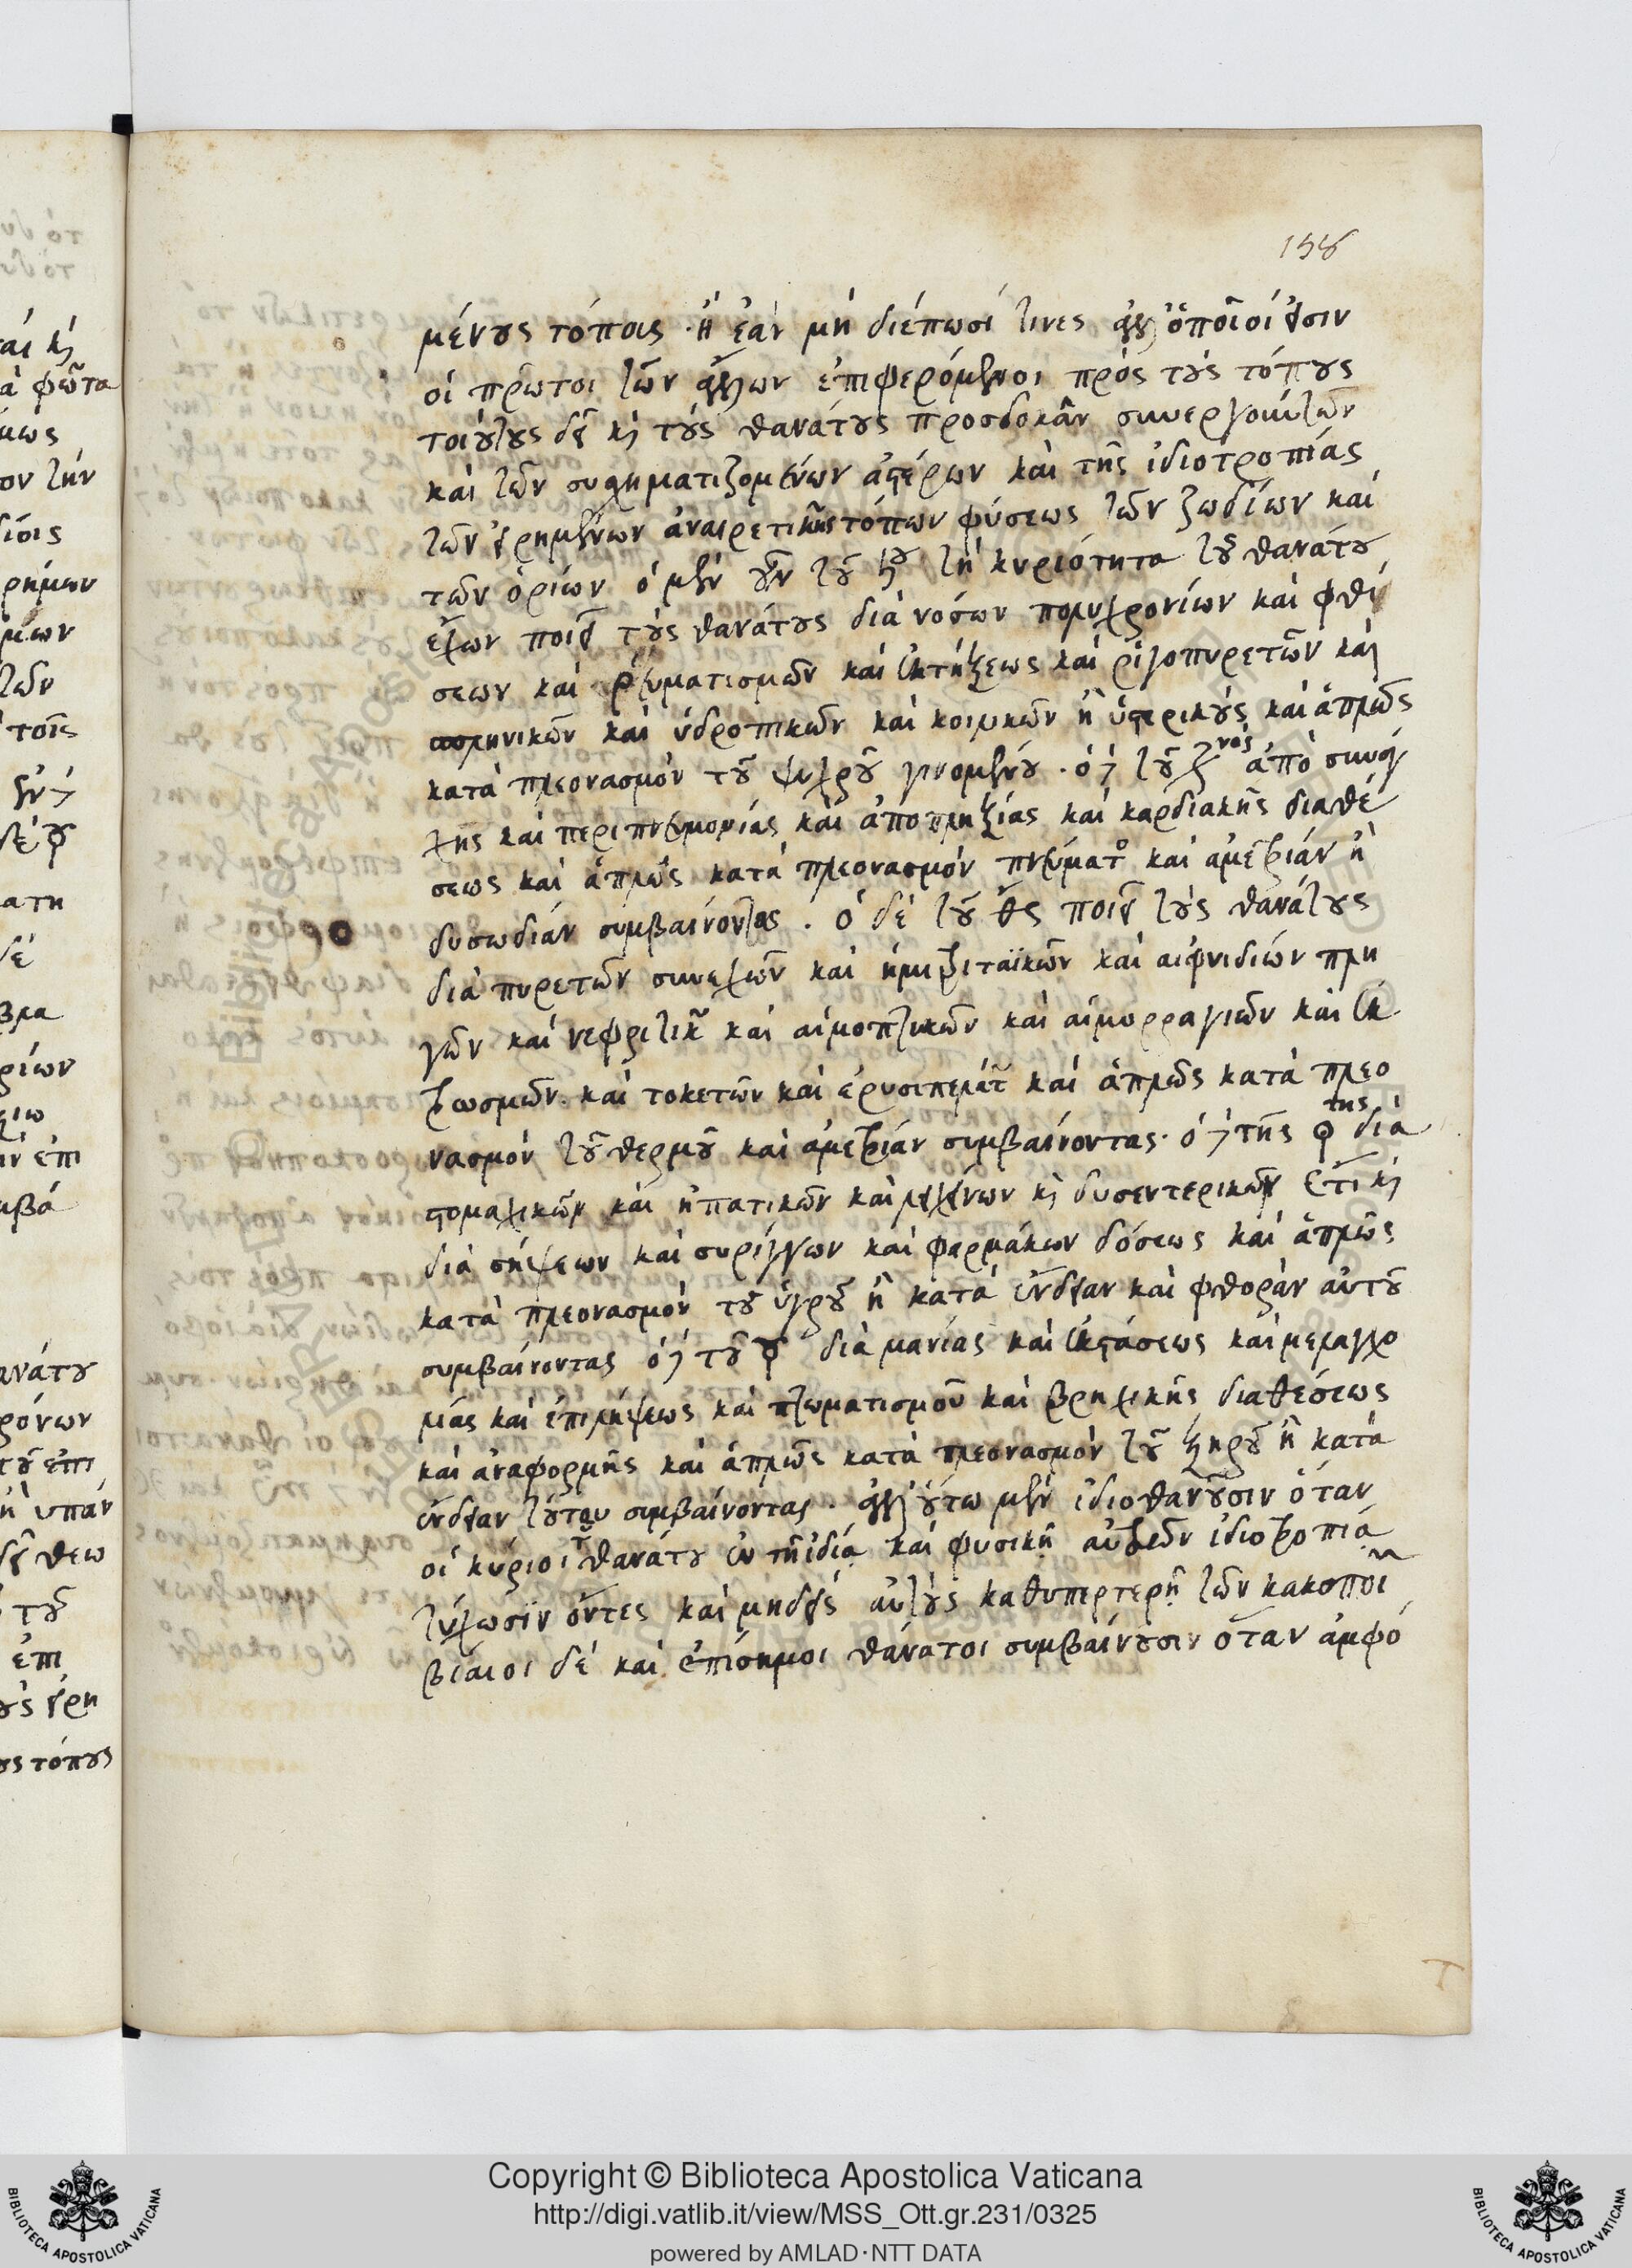 158
μένους τόποις · ἢ ἐὰν μὴ διέπωσί τινες ἀλλ' ὁποῖοί εἰσιν
οἱ πρῶτοι τῶν ἄλλων ἐπιφερόμενοι πρὸς τοὺς τόπους
τοιούτους δεῖ κὶ τοὺς θανάτους προσδοκᾶν συνεργούντων
καὶ τῶν συσχηματιζομένων ἀστέρων καὶ τῆς ἰδιοτροπίας
τῶν εἰρημένων ἀναιρετικῶν τόπων φύσεως τῶν ζωδίων καὶ
τῶν ὁρίων ὁ μὲν οὖν τοῦ ♄ου τὴ κυριότητα τοῦ θανάτου
ἔχων ποιεῖ τοὺς θανάτους διὰ νόσων πολυχρονίων καὶ φθί
σεων καὶ ῥευματισμῶν καὶ ἐκτήξεως καὶ ῥιγοπυρετῶν καὶ
σπληνικῶν καὶ ὑδροπικῶν καὶ κοιλικῶν ἢ ὑστερικοὺς καὶ ἁπλῶς
κατὰ πλεονασμὸν τοῦ ψυχροῦ γινομένου · ὁ δὲ τοῦ ♃ νος ἀπὸ συνάγ
χης καὶ περιπνευμονίας καὶ ἀποπληξίας καὶ καρδιακῆς διαθέ
σεως καὶ ἁπλῶς κατὰ πλεονασμὸν πνεύματος καὶ ἀμετρίαν ἢ
δυσωδίαν συμβαίνοντας · ὁ δὲ τοῦ ♂ς ποιεῖ τοὺς θανάτους
διὰ πυρετῶν συνεχῶν καὶ ἡμιτριταϊκῶν καὶ αἰφνιδίων πλη
γῶν καὶ νεφριτικῶν καὶ αἱμοπτυικῶν καὶ αἱμορραγιῶν καὶ ἐκ
τρωσμῶν καὶ τοκετῶν καὶ ἐρυσιπελάτων καὶ ἁπλῶς κατὰ πλεο
νασμὸν τοῦ θερμοῦ καὶ ἀμετρίαν συμβαίνοντας · ὁ δὲ τῆς ♀ της διὰ
στομαχικῶν καὶ ἡπατικῶν καὶ λειχήνων κὶ δυσεντερικῶν ἔτι κὶ
διὰ σήψεων καὶ συρίγγων καὶ φαρμάκων δόσεως καὶ ἁπλῶς
κατὰ πλεονασμὸν τοῦ ὑγροῦ ἢ κατὰ ἔνδειαν καὶ φθορὰν αὐτοῦ
συμβαίνοντας ὁ δὲ τοῦ ☿ διὰ μανίας καὶ ἐκστάσεως καὶ μελαγχο
λίας καὶ ἐπιλήψεως καὶ πτωματισμοῦ καὶ βρηχικῆς διαθέσεως
καὶ ἀναφορμῆς καὶ ἁπλῶς κατὰ πλεονασμὸν τοῦ ξηροῦ ἢ κατὰ
ἔνδειαν τούτου συμβαίνοντας · ἀλλ' οὕτω μὲν ἰδιοθανοῦσιν ὅταν
οἱ κύριοι τοῦ θανάτου ἐν τῇ ἰδίᾳ καὶ φυσικῇ αὐτῶν ἰδιοτροπίᾳ
τύχωσιν ὄντες καὶ μηδεὶς αὐτοὺς καθυπερτερῇ τῶν κακοποιῶν
βίαιοι δὲ καὶ ἐπίσημοι θάνατοι συμβαίνουσιν ὅταν ἀμφό
Copyright © Biblioteca Apostolica Vaticana
http://digi.vatlib.it/view/MSS_Ott.gr.231/0325
powered by AMLAD·NTT DATA
BIBLIOTECA APOSTOLICA VATICANA
BIBLIOTECA APOSTOLICA VATICANA